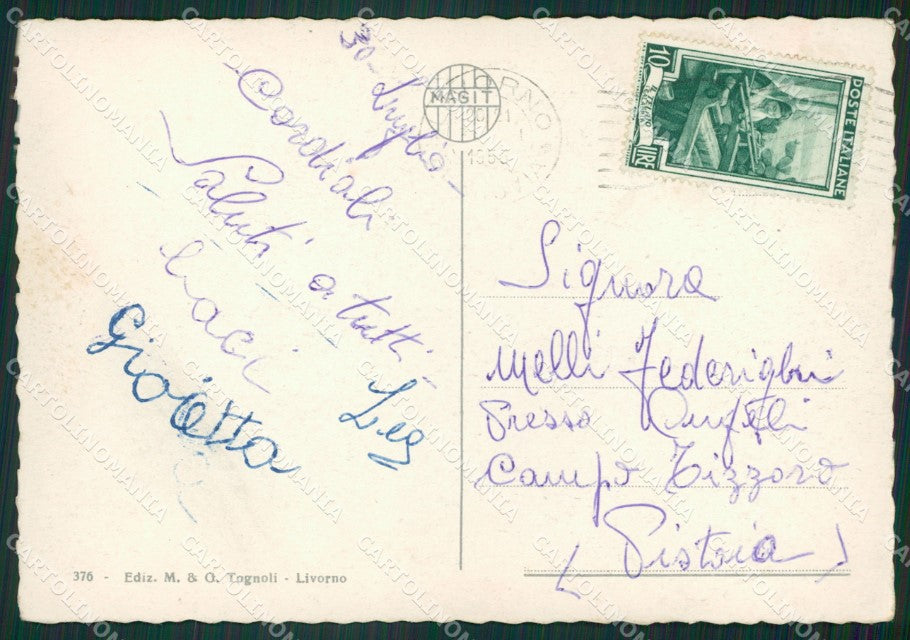 30 - Luglio -
Cordiali
Saluti a tutti
baci
Lea
Gioietta
376 - Ediz. M. & O. Tognoli - Livorno
MAGIT
195
10 LIRE
POSTE ITALIANE
Signora
Melli Federighi
Presso
Campo Tizzoro
(Pistoia)
CARTOLINOMANIA